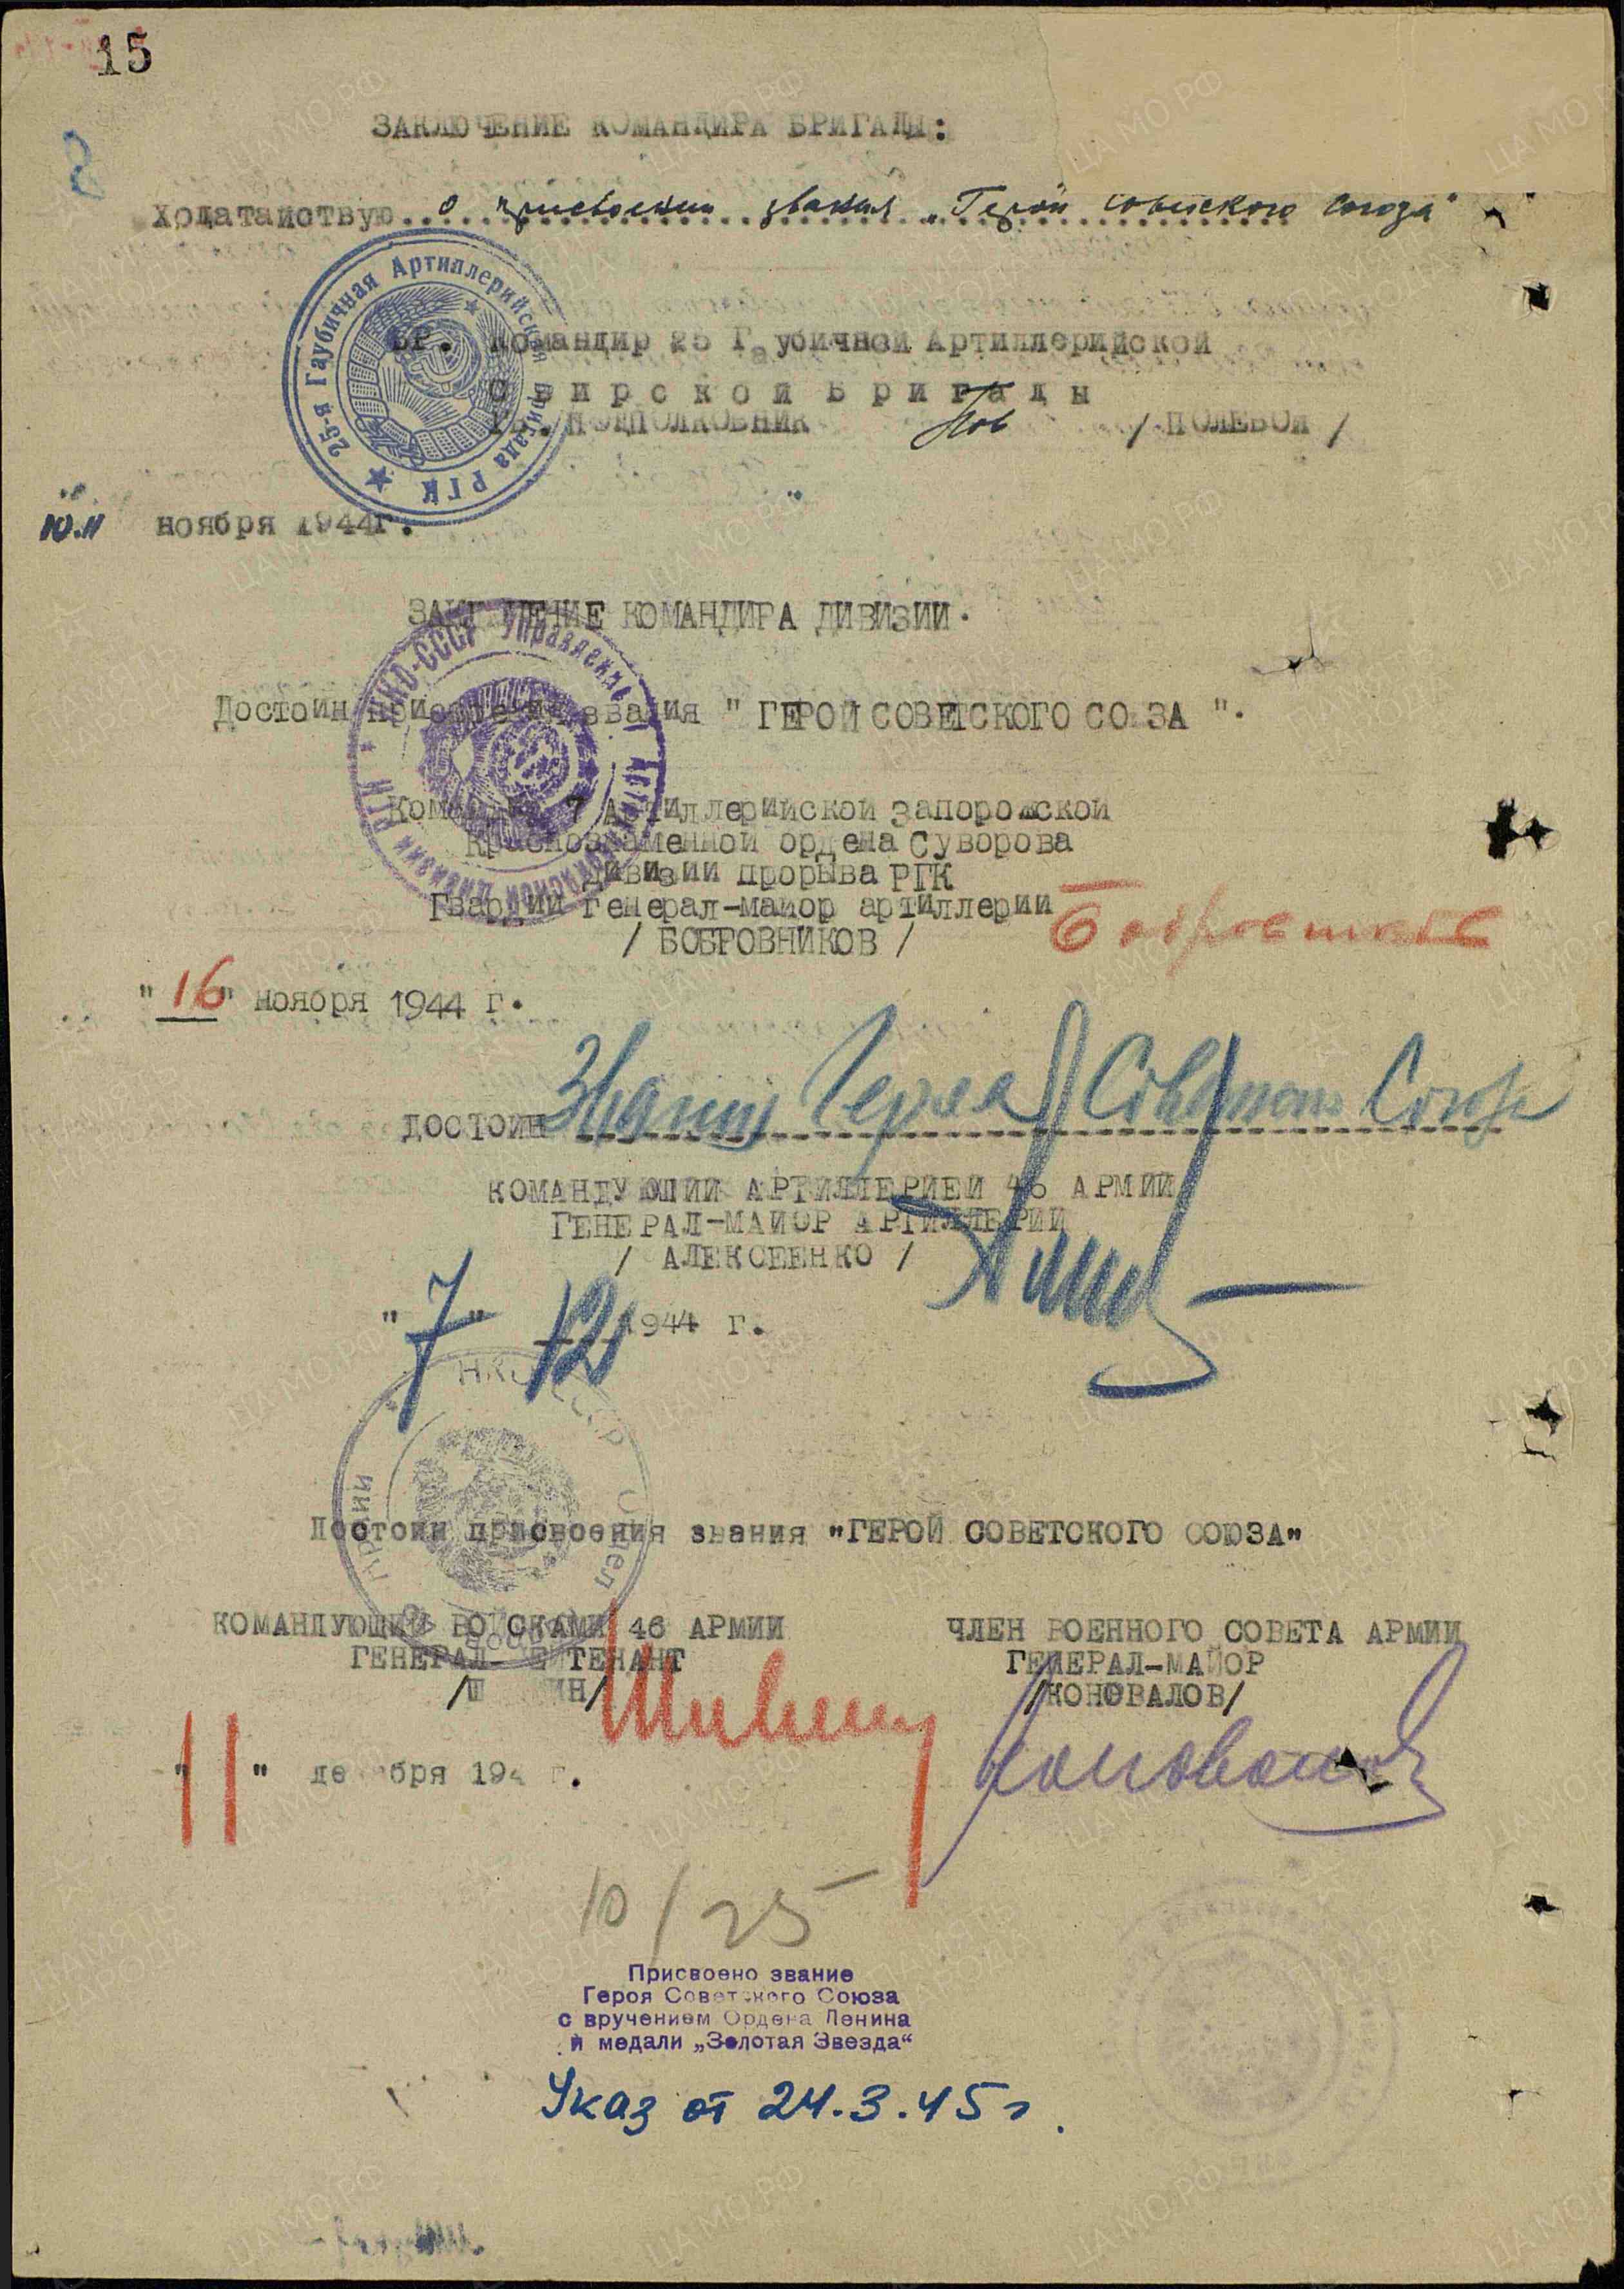 15
8
ЗАКЛЮЧЕНИЕ КОМАНДИРА БРИГАДЫ:
Ходатайствую о присвоении звания „Герой Советского Союза"
25-я Гаубичная Артиллерийская Бригада РГК
ВР. Командир 25 Гаубичной Артиллерийской
Свирской Бригады
Гв. ПОДПОЛКОВНИК / ПОЛЕВОЙ /
10.11 ноября 1944г.
ЗАКЛЮЧЕНИЕ КОМАНДИРА ДИВИЗИИ.
НКО-СССР Управление
Достоин присвоения звания " ГЕРОЙ СОВЕТСКОГО СОЮЗА ".
Командир 7 Артиллерийской Запорожской
Краснознаменной ордена Суворова
дивизии прорыва РГК
Гвардии генерал-майор артиллерии
/ БОБРОВНИКОВ / Бобровников
" 16 " ноября 1944 г.
ДОСТОИН Звания Героя Советского Союза
КОМАНДУЮЩИЙ АРТИЛЛЕРИЕЙ 46 АРМИИ
ГЕНЕРАЛ-МАЙОР АРТИЛЛЕРИИ
/ АЛЕКСЕЕНКО /
" 7 " 12 1944 г.
НКО СССР
Достоин присвоения звания "ГЕРОЙ СОВЕТСКОГО СОЮЗА"
КОМАНДУЮЩИЙ ВОЙСКАМИ 46 АРМИИ
ГЕНЕРАЛ-ЛЕЙТЕНАНТ
ЧЛЕН ВОЕННОГО СОВЕТА АРМИИ
ГЕНЕРАЛ-МАЙОР
/КОНОВАЛОВ/
Коновалов
" 11 " декабря 194 г.
10/25
Присвоено звание
Героя Советского Союза
с вручением Ордена Ленина
и медали „Золотая Звезда"
Указ от 24.3.45 г.
ЦАМО РФ
ПАМЯТЬ НАРОДА